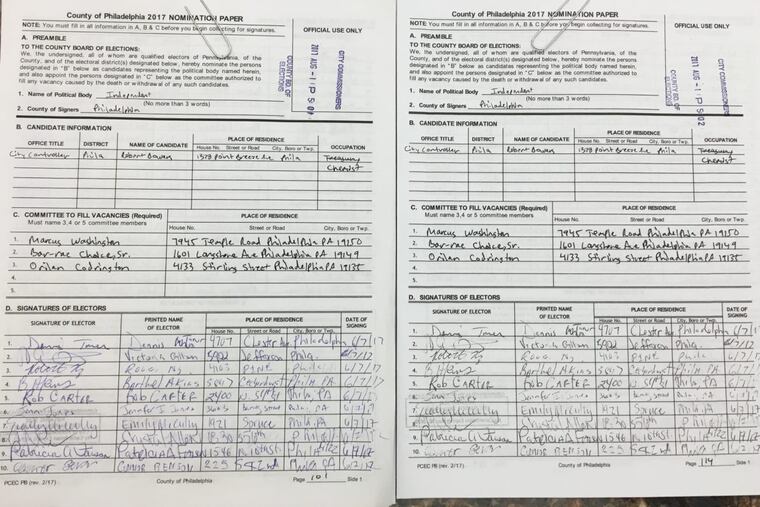 County of Philadelphia 2017 NOMINATION PAPER
NOTE: You must fill in all information in A, B & C before you begin collecting for signatures.
OFFICIAL USE ONLY
A. PREAMBLE
TO THE COUNTY BOARD OF ELECTIONS:
We, the undersigned, all of whom are qualified electors of Pennsylvania, of the
County, and of the electoral district(s) designated below, hereby nominate the persons
designated in "B" below as candidates representing the political body named herein,
and also appoint the persons designated in "C" below as the committee authorized to
fill any vacancy caused by the death or withdrawal of any such candidates.
COUNTY BD OF
ELECTIONS
2017 AUG -1 P 5:0
CITY COMMISSIONERS
1. Name of Political Body Independent
(No more than 3 words)
2. County of Signers Philadelphia
B. CANDIDATE INFORMATION
OFFICE TITLE DISTRICT NAME OF CANDIDATE PLACE OF RESIDENCE OCCUPATION
House No. Street or Road City, Boro or Twp.
City Controller Phila Robert Bowen 1328 Point Breeze Ave Phila Treasury
Chemist
C. COMMITTEE TO FILL VACANCIES (Required)
Must name 3, 4 or 5 committee members
PLACE OF RESIDENCE
House No. Street or Road City, Boro or Twp.
1. Marcus Washington 7945 Temple Road Philadelphia PA 19150
2. Bar-rae Choice, Sr. 1601 Longshore Ave Philadelphia PA 19149
3. Orilan Codrington 4133 Stirling Street Philadelphia PA 19135
4.
5.
D. SIGNATURES OF ELECTORS
SIGNATURE OF ELECTOR PRINTED NAME OF ELECTOR PLACE OF RESIDENCE DATE OF SIGNING
House No. Street or Road City, Boro or Twp.
1. Dennis 4707 Chester Ave Philadelphia 6/7/17
2. Victoria 5902 Jefferson Phila. 6/7/17
3. 4103 PINE Phila 6/7/17
4. B Akins Barthel Akins 5817 Phila PA 6/7/17
5. Rob CARTER Rob CARTER 2400 Phila, PA 6/7/17
6. Jennifer I Jones PA
7. Emily 1421 Spruce Phila PA 6/7/17
8. Phila
9. Patricia A Patricia A 1546 Phila
10. CONNOR BENSON 225
PCEC PB (rev. 2/17) County of Philadelphia Page 101 Side 1
County of Philadelphia 2017 NOMINATION PAPER
NOTE: You must fill in all information in A, B & C before you begin collecting for signatures.
OFFICIAL USE ONLY
A. PREAMBLE
TO THE COUNTY BOARD OF ELECTIONS:
We, the undersigned, all of whom are qualified electors of Pennsylvania, of the
County, and of the electoral district(s) designated below, hereby nominate the persons
designated in "B" below as candidates representing the political body named herein,
and also appoint the persons designated in "C" below as the committee authorized to
fill any vacancy caused by the death or withdrawal of any such candidates.
COUNTY BD OF
ELECTIONS
2017 AUG -1 P 5:02
CITY COMMISSIONERS
1. Name of Political Body Independent
(No more than 3 words)
2. County of Signers Philadelphia
B. CANDIDATE INFORMATION
OFFICE TITLE DISTRICT NAME OF CANDIDATE PLACE OF RESIDENCE OCCUPATION
House No. Street or Road City, Boro or Twp.
City Controller Phila Robert Bowen 1328 Point Breeze Ave Phila Treasury
Chemist
C. COMMITTEE TO FILL VACANCIES (Required)
Must name 3, 4 or 5 committee members
PLACE OF RESIDENCE
House No. Street or Road City, Boro or Twp.
1. Marcus Washington 7945 Temple Road Philadelphia PA 19150
2. Bar-rae Choice, Sr. 1601 Longshore Ave Philadelphia PA 19149
3. Orilan Codrington 4133 Stirling Street Philadelphia PA 19135
4.
5.
D. SIGNATURES OF ELECTORS
SIGNATURE OF ELECTOR PRINTED NAME OF ELECTOR PLACE OF RESIDENCE DATE OF SIGNING
House No. Street or Road City, Boro or Twp.
1. Dennis 4707 Chester Ave Philadelphia 6/7/17
2. Victoria 5902 Jefferson Phila. 6/7/17
3. 4103 PINE Phila 6/7/17
4. B Akins Barthel Akins 5817 Phila PA 6/7/17
5. Rob CARTER Rob CARTER 2400 Phila, PA 6/7/17
6. Jennifer I Jones PA
7. Emily 1421 Spruce Phila PA 6/7/17
8. Phila
9. Patricia A Patricia A 1546 Phila
10. CONNOR BENSON 225
PCEC PB (rev. 2/17) County of Philadelphia Page 114 Side 1